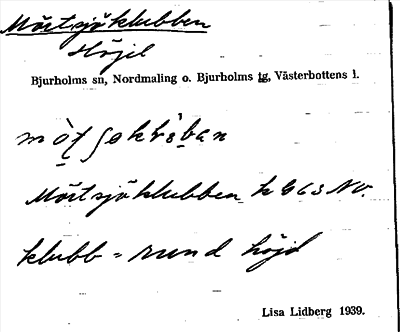 Mörtsjöklubben
Höjd
Bjurholms sn, Nordmaling o. Bjurholms tg, Västerbottens l.
Mörtsjöklubben k 963 NV.
klubb = rund höjd
Lisa Lidberg 1939.